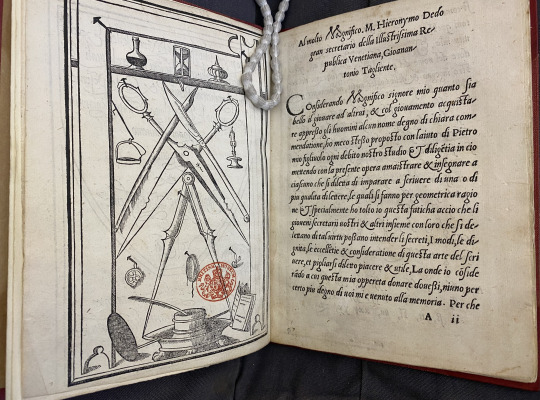 Al molto Magnifico. M. Hieronymo Dedo
gran secretario della Illustrissima Re-
publica Venetiana, Gioanan-
tonio Tagliente.
COnsiderando Magnifico signore mio quanto sia
bello il giouare ad altrui, & col giouamento acquista-
re appresso gli huomini alcun nome degno di chiara com-
mendatione, ho meco stesso proposto con laiuto di Pietro
mio figliuolo ogni debito nostro studio Et diligẽtia in cio
mettendo con la presente opera amaistrare & insegnare a
ciascuno che si diletta di imparare a scriuere di una o di
piu qualita di lettere, le quali si fanno per geometrica ragio
ne Et spetialmente ho tolto io questa faticha accio che li
gioueni secretarii nostri & altri insieme con loro che si de-
lettano di tal uirtu possano intender li secreti, I modi, le di-
gnita, le eccellẽtie & consideratione di questa arte del scri
uere, et pigliarsi diletto piacere & utile, La onde io cõside
rãdo a cui questa mia opperetta donare douessi, niuno per
certo piu degno di uoi mi e uenuto alla memoria. Per che
A ii